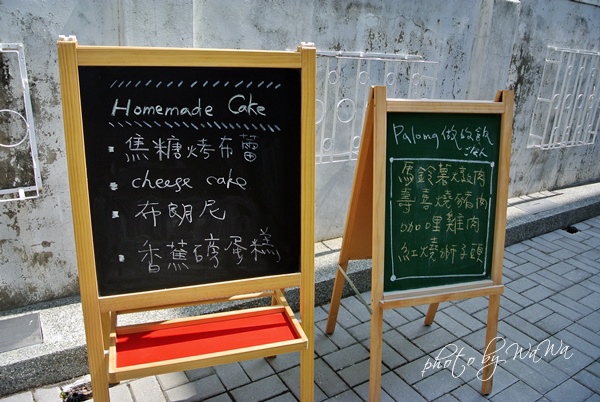 Homemade Cake
焦糖烤布蕾
cheese cake
布朗尼
香蕉磅蛋糕
Palong做收飯
馬鈴薯燉肉
壽喜燒豬肉
咖哩雞肉
紅燒獅子頭
photo by WaWa